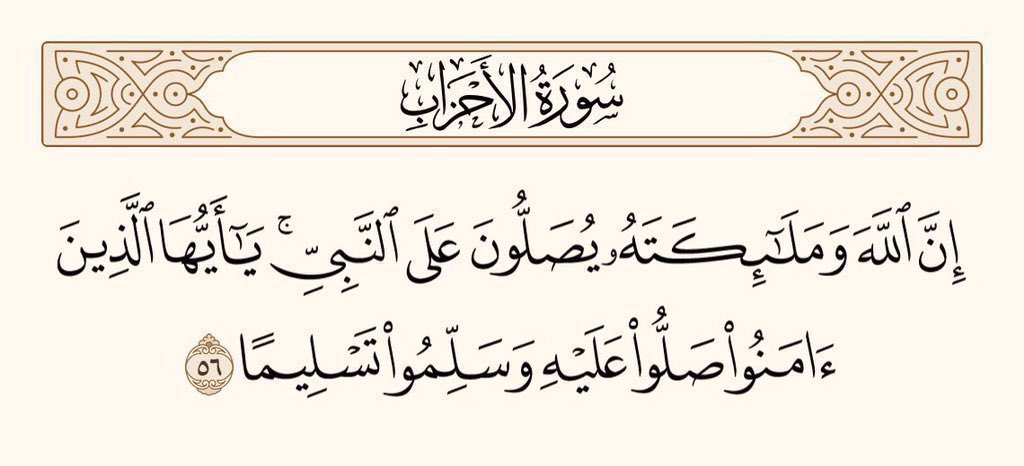 سُورَةُ الأَحْزَابِ
إِنَّ ٱللَّهَ وَمَلَـٰٓئِكَتَهُۥ يُصَلُّونَ عَلَى ٱلنَّبِىِّ ۚ يَـٰٓأَيُّهَا ٱلَّذِينَ
ءَامَنُوا۟ صَلُّوا۟ عَلَيْهِ وَسَلِّمُوا۟ تَسْلِيمًا ٥٦